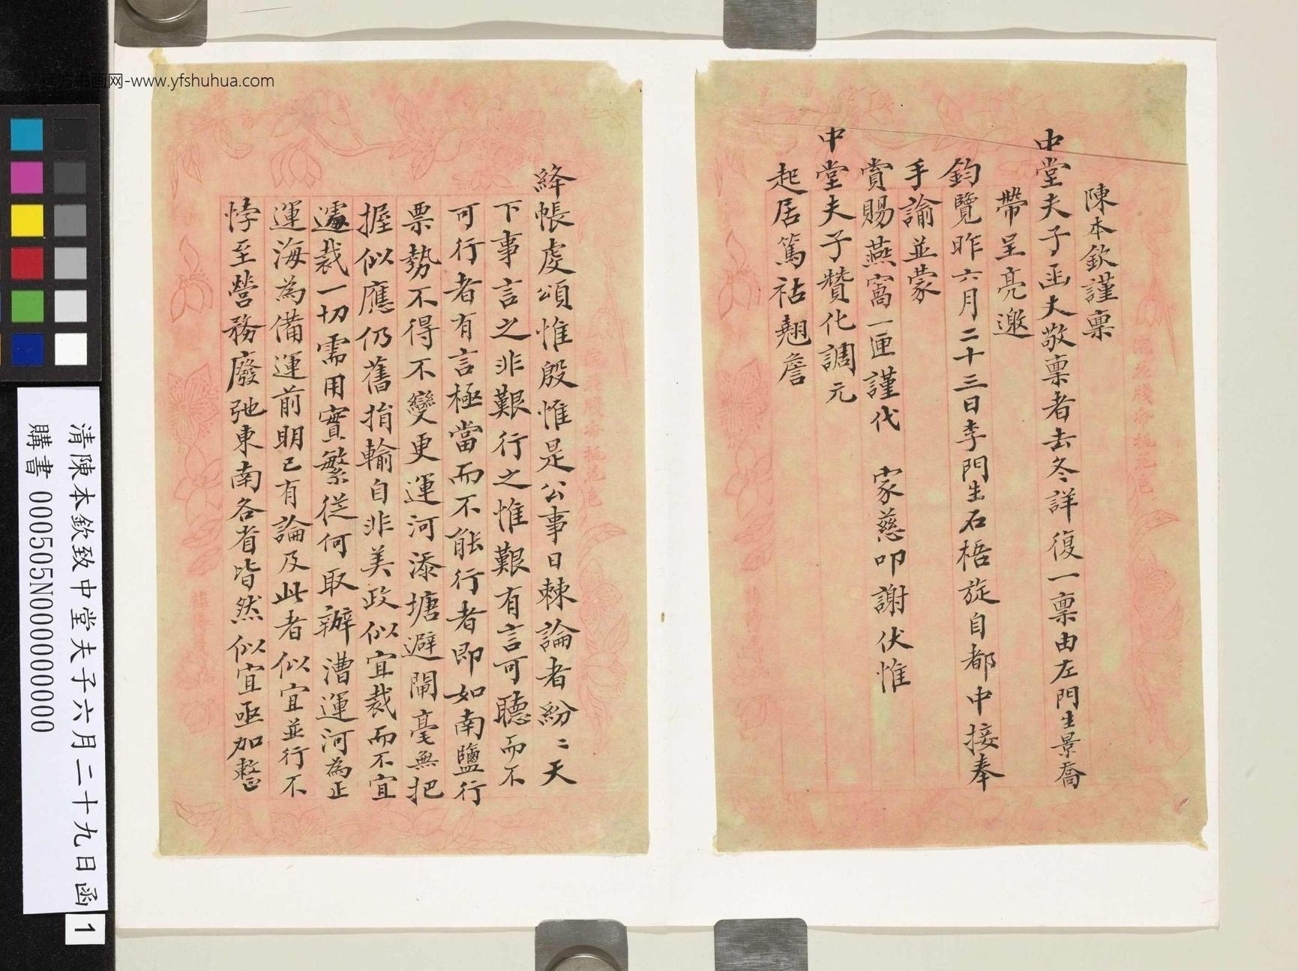 陳本欽謹稟
中堂夫子函丈敬稟者去冬詳復一稟由左門生景喬
帶呈亮邀
鈞覽昨六月二十三日李門生石梧旋自都中接奉
手諭並蒙
賞賜燕窩一匣謹代 家慈叩謝伏惟
中堂夫子贊化調元
起居篤祜翹詹
絳帳虔頌惟殷惟是公事日棘論者紛〻天
下事言之非艱行之惟艱有言可聽而不
可行者有言極當而不能行者即如南鹽行
票勢不得不變更運河添塘避閘毫無把
握似應仍舊捐輸自非美政似宜裁而不宜
遽裁一切需用實繁從何取辦漕運河為正
運海為備運前明已有論及此者似宜並行不
悖至營務廢弛東南各省皆然似宜亟加整
清陳本欽致中堂夫子六月二十九日函
購書 000505N000000000
1
书画网-www.yfshuhua.com